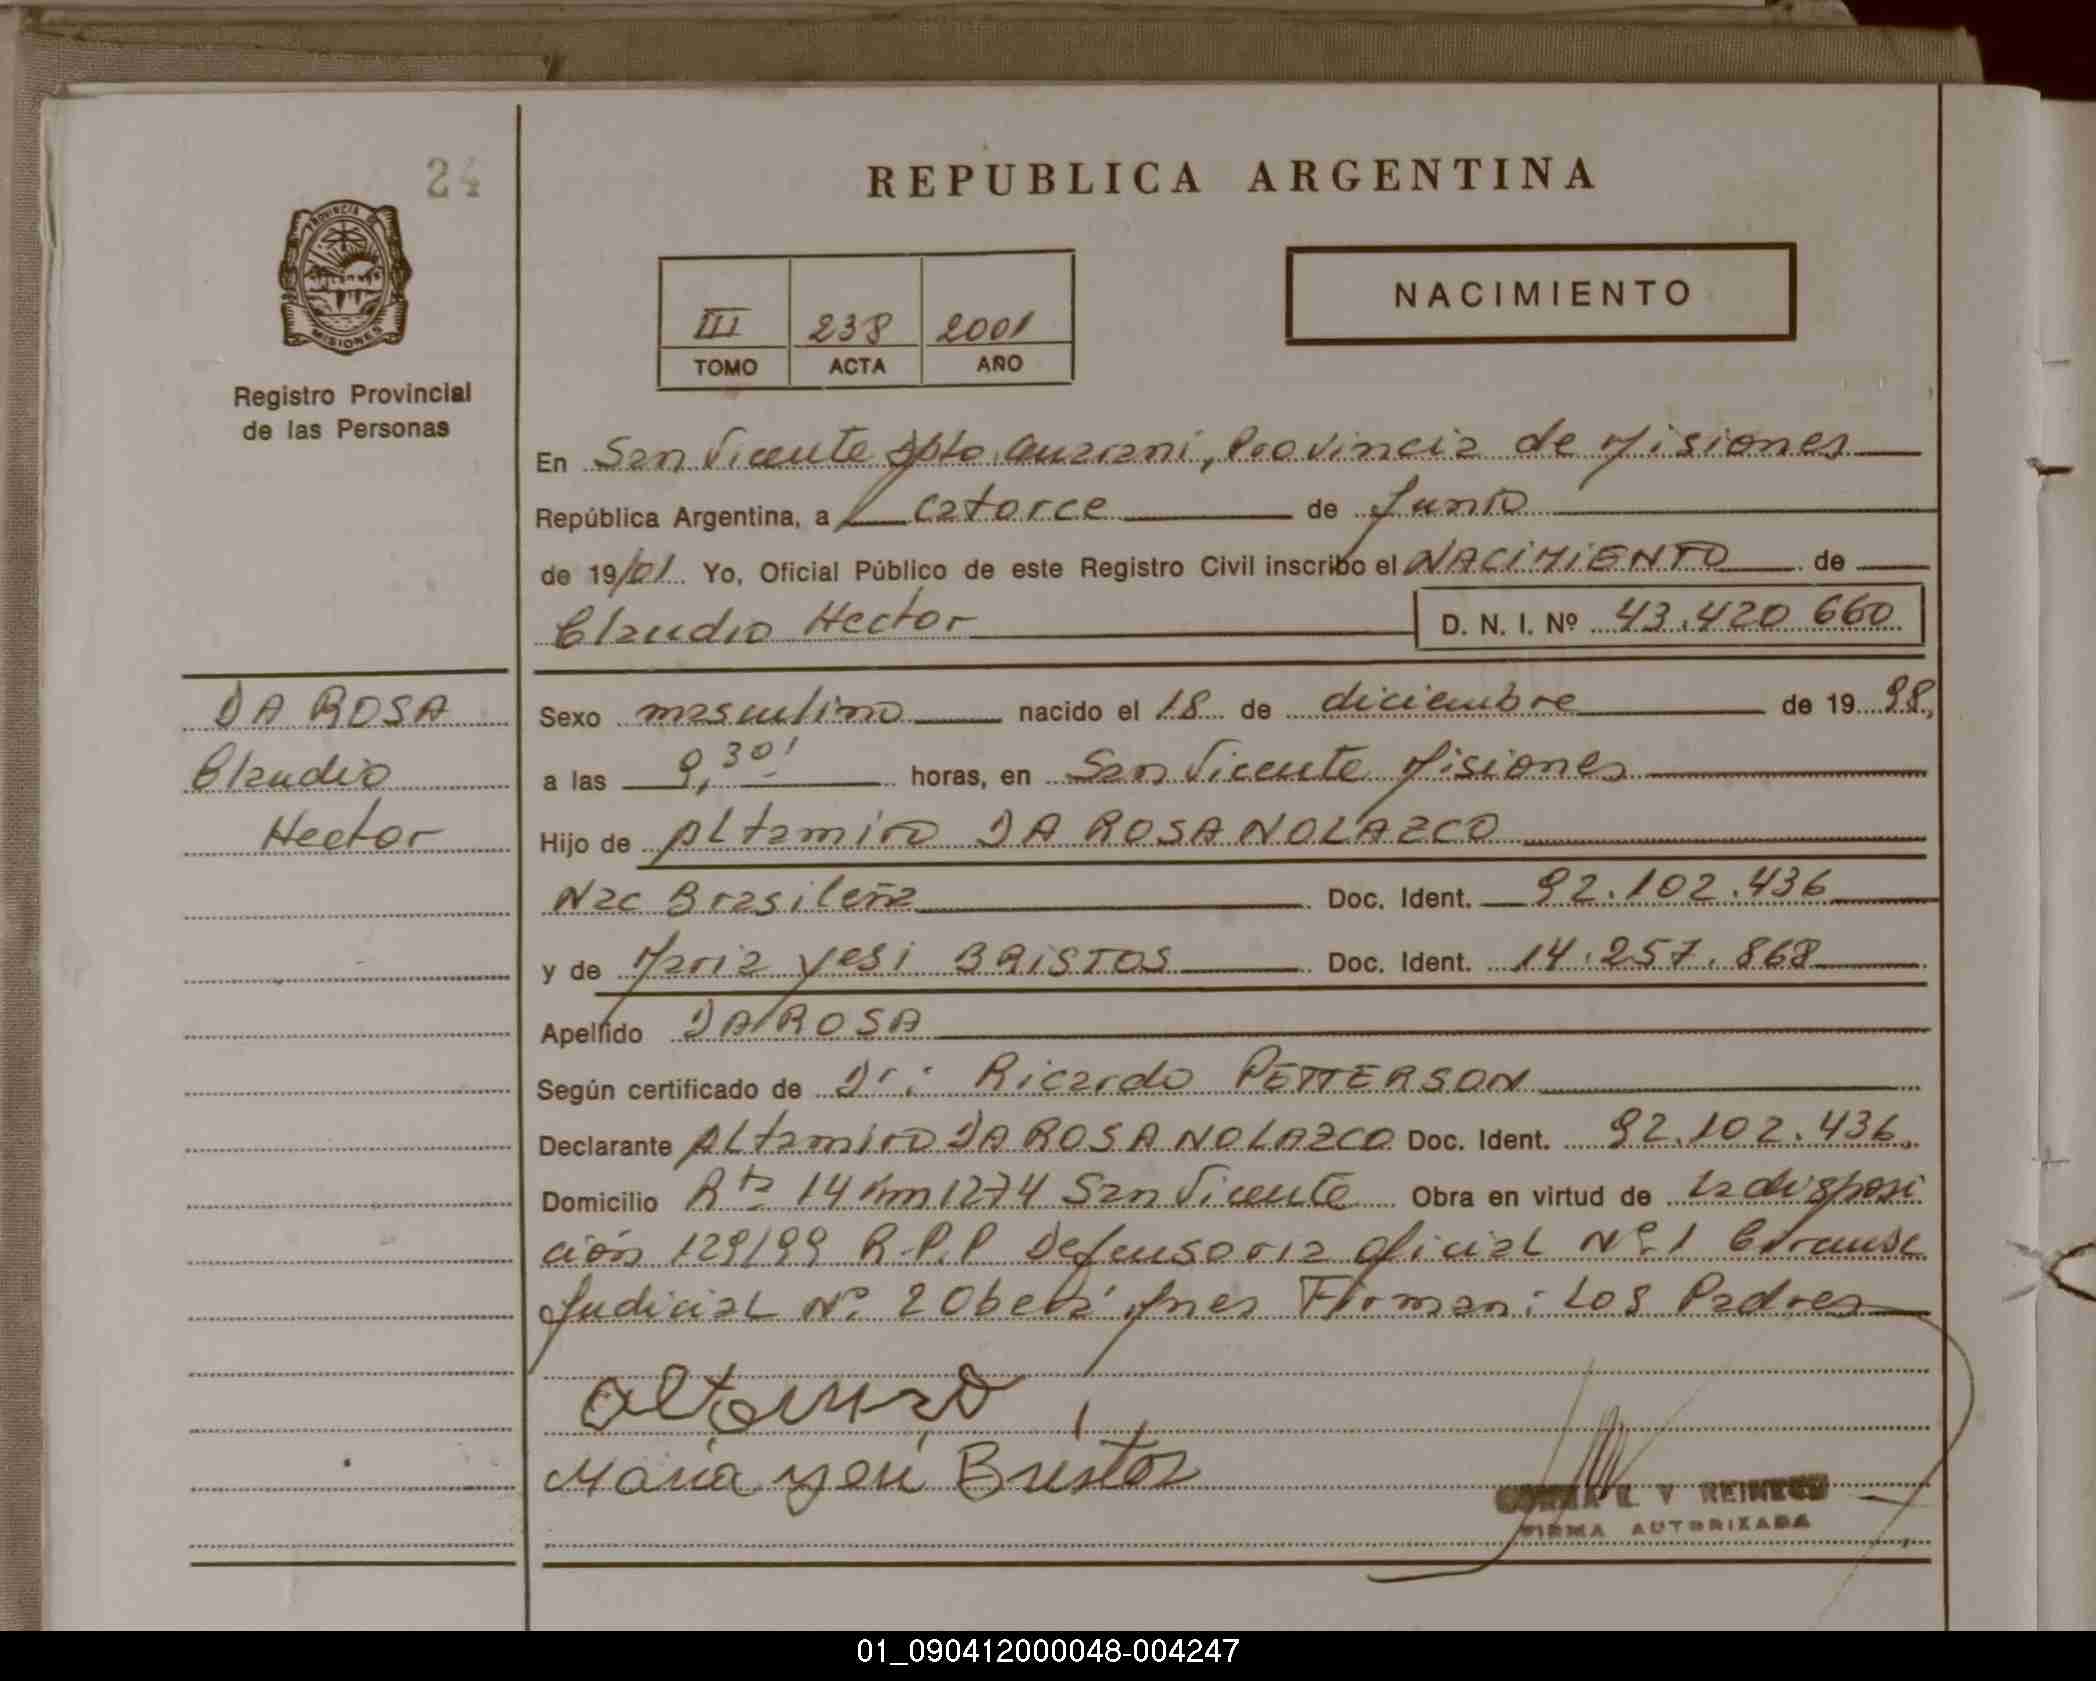 24
REPUBLICA ARGENTINA
PROVINCIA DE
MISIONES
Registro Provincial
de las Personas
III 238 2001
TOMO ACTA AÑO
NACIMIENTO
En San Vicente Dpto. Guarani, Provincia de Misiones
República Argentina, a catorce de Junio
de 19/01 Yo, Oficial Público de este Registro Civil inscribo el NACIMIENTO de
Claudio Hector D. N. I. Nº 43.420 660
DA ROSA
Claudio
Hector
Sexo masculino nacido el 18 de diciembre de 19 98,
a las 9,30' horas, en San Vicente Misiones
Hijo de Altamiro DA ROSA NOLAZCO
Nac Brasileña Doc. Ident. 92.102.436
y de Maria Yesi BRISTOS Doc. Ident. 14.257.868
Apellido DA ROSA
Según certificado de Dr: Ricardo PETTERSON
Declarante Altamiro DA ROSA NOLAZCO Doc. Ident. 92.102.436
Domicilio Rta 14 Km 1274 San Vicente Obra en virtud de la disposi
ción 129/99 R.P.P Defensoria Oficial Nº 1
Judicial Nº 2 Obera Mnes Firman: Los Padres
Maria yesi Bristos
V REINECK
FIRMA AUTORIZADA
01_090412000048-004247